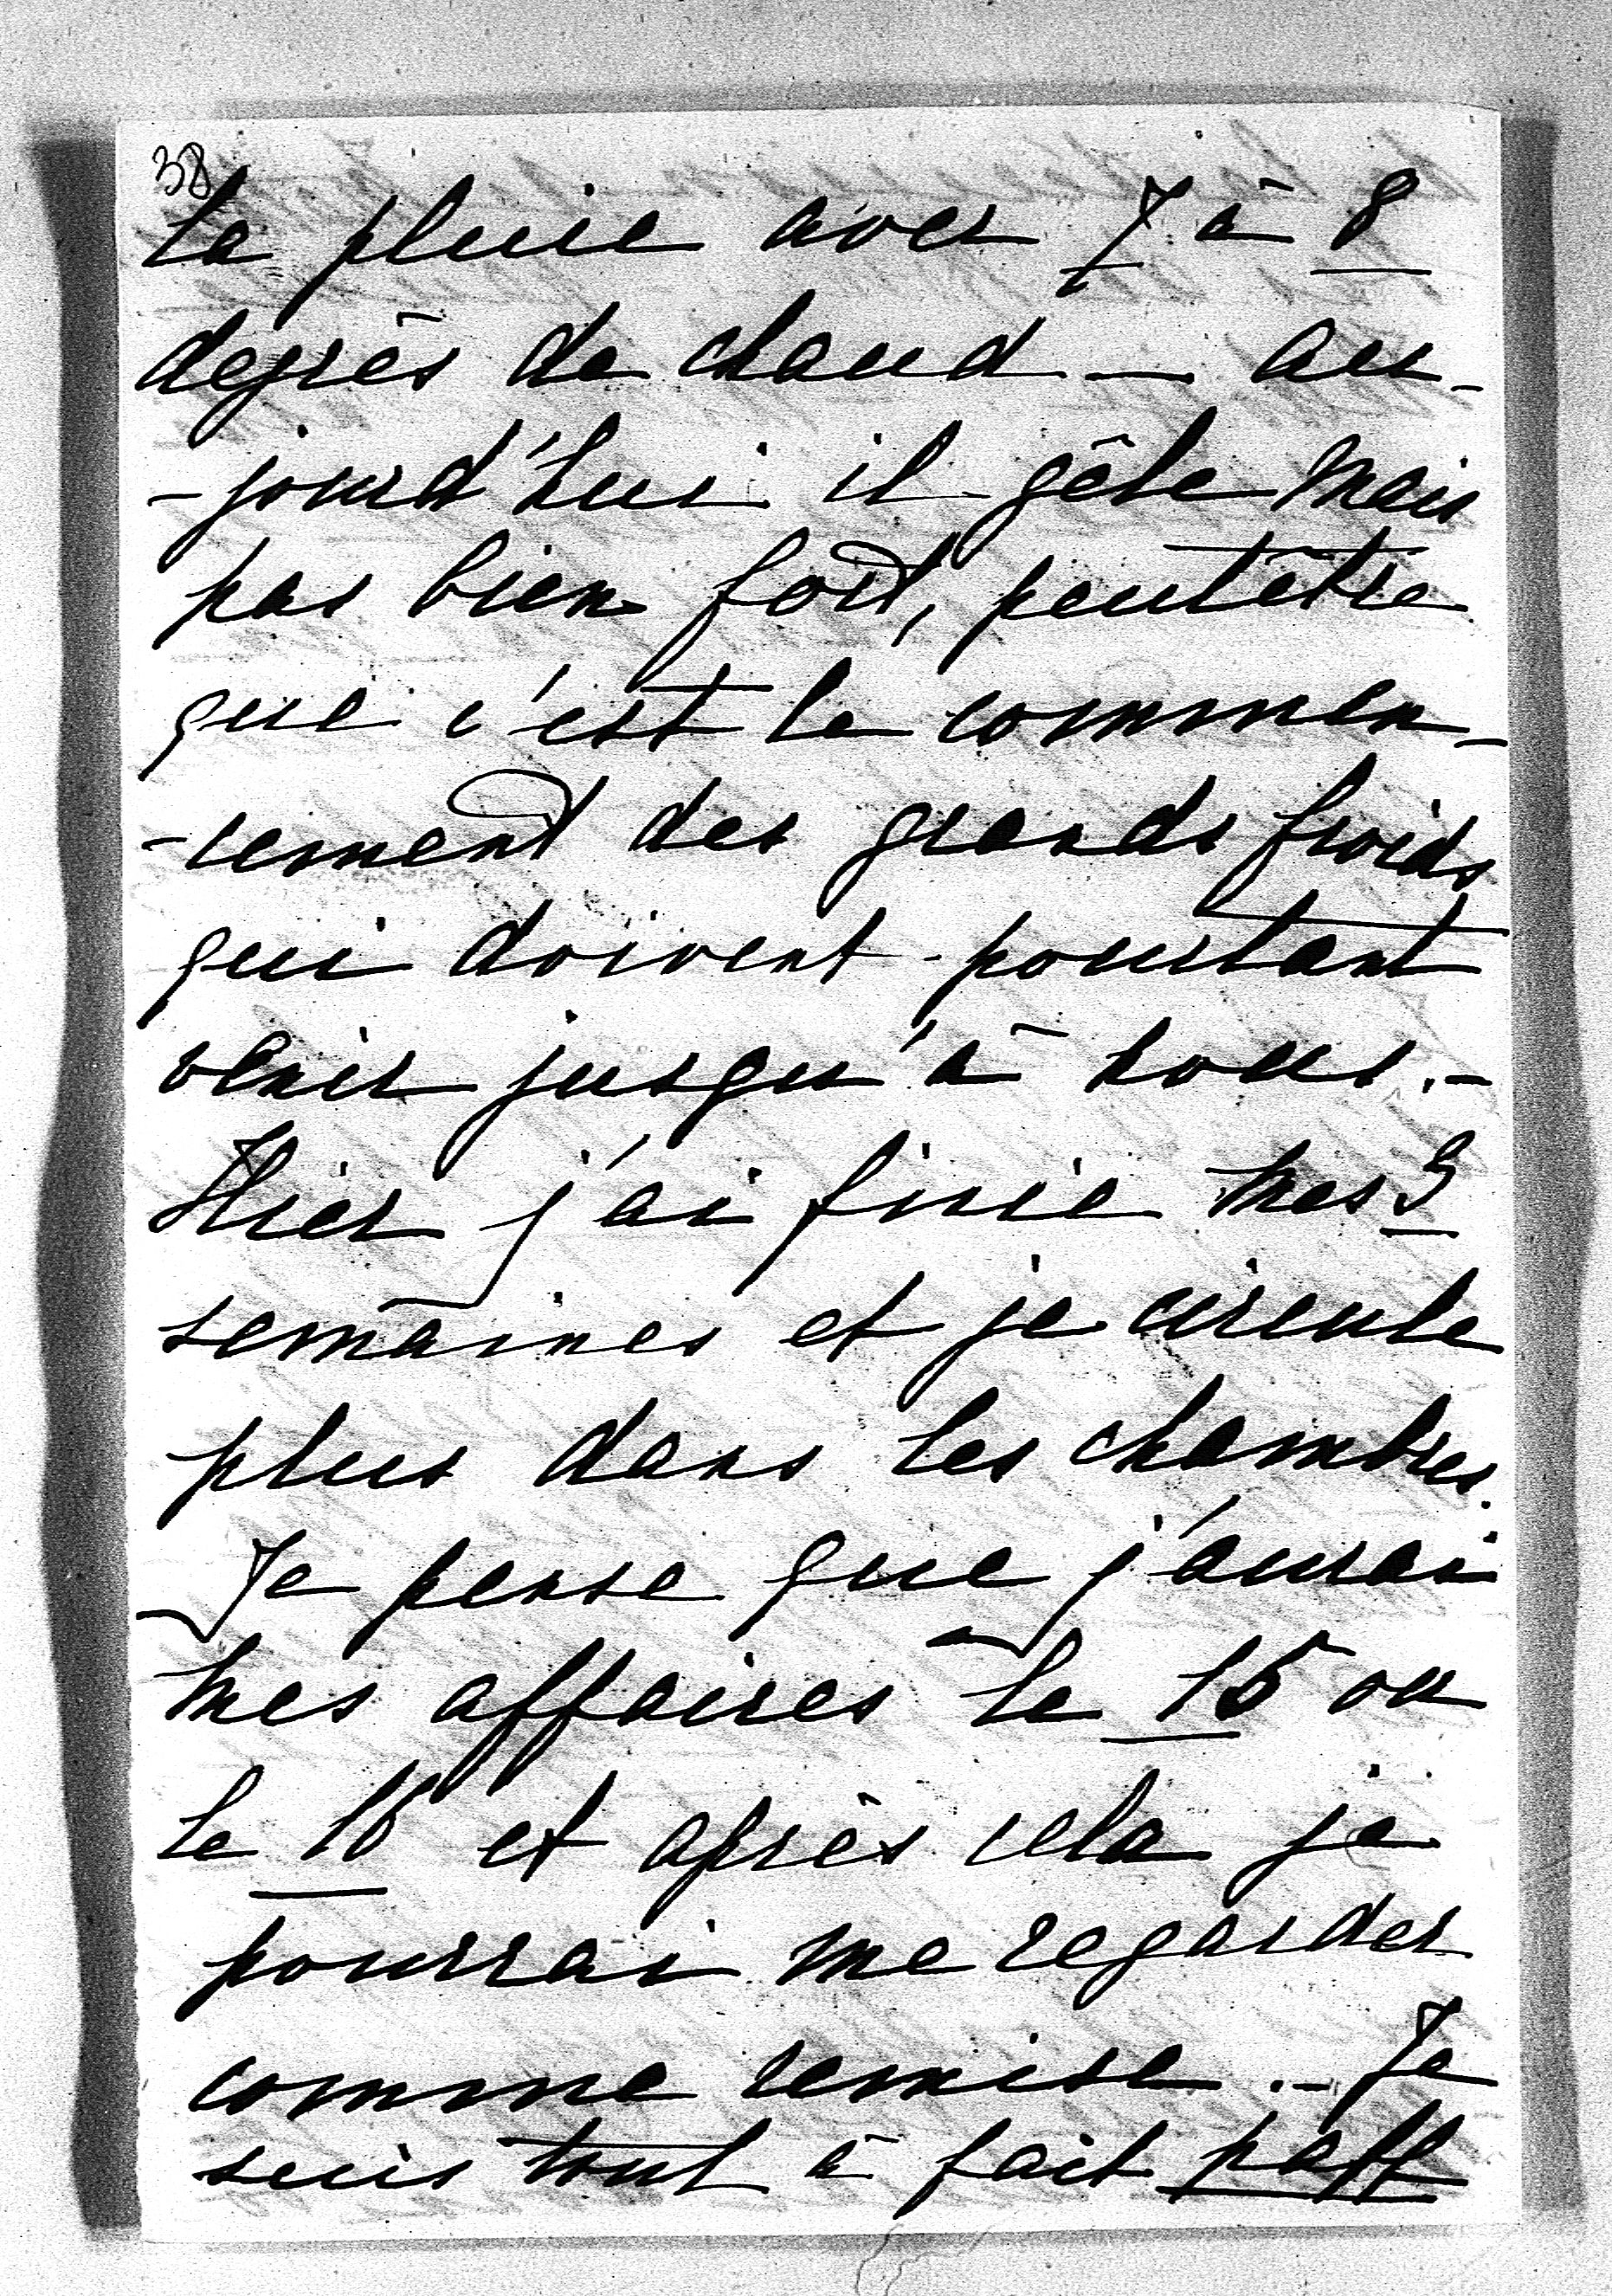 38
la pluie avec 7 à 8
degrès de chaud — au-
-jourd'hui il gêle mais
pas bien fort, peutêtre
que c'est le commen-
-cement des grands froids
qui doivent pourtant
venir jusqu'à nous.-
Hier j'ai finie mes 3
semaines et je circule
plus dans les chambres.
Je pense que j'aurai
mes affaires le 15 ou
le 16 et après cela je
pourrai me regarder
comme remise.- Je
suis tout à fait paff